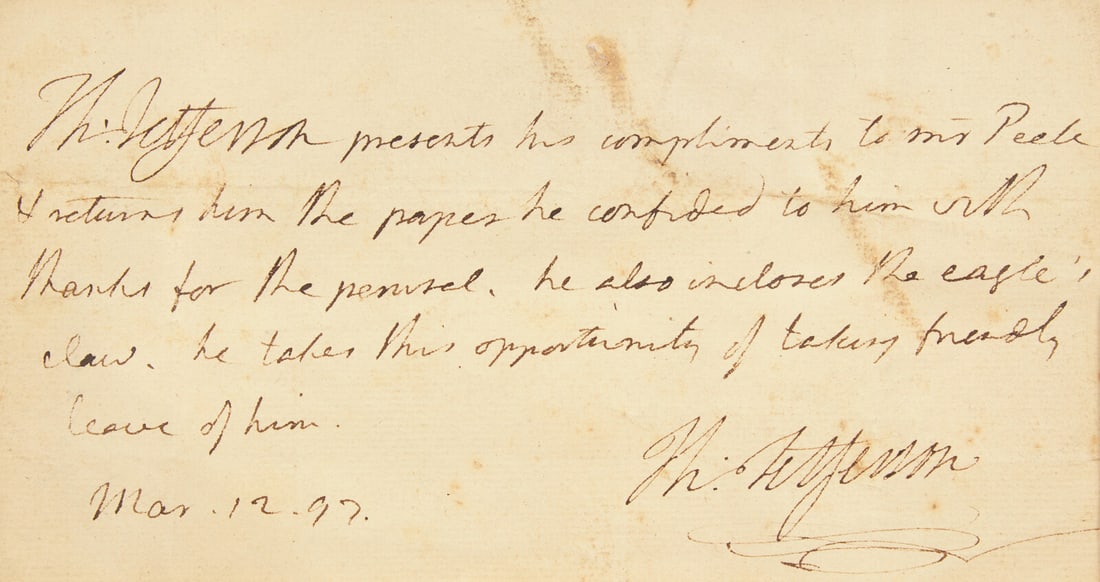 Th: Jefferson presents his compliments to mr Peele
& returns him the paper he confided to him with
thanks for the perusal. he also incloses the eagle's
claw. he takes this opportunity of taking friendly
leave of him.
Th: Jefferson
Mar. 12. 97.